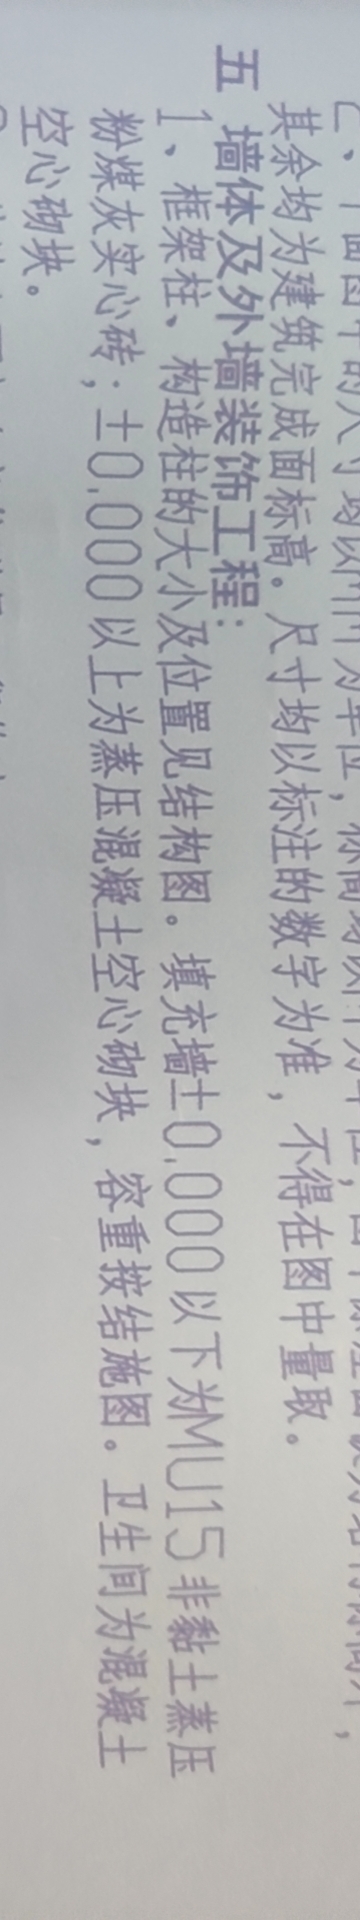 其余均为建筑完成面标高。尺寸均以标注的数字为准，不得在图中量取。
五 墙体及外墙装饰工程：
1、框架柱、构造柱的大小及位置见结构图。填充墙±0.000以下为MU15非黏土蒸压
粉煤灰实心砖；±0.000以上为蒸压混凝土空心砌块，容重按结施图。卫生间为混凝土
空心砌块。